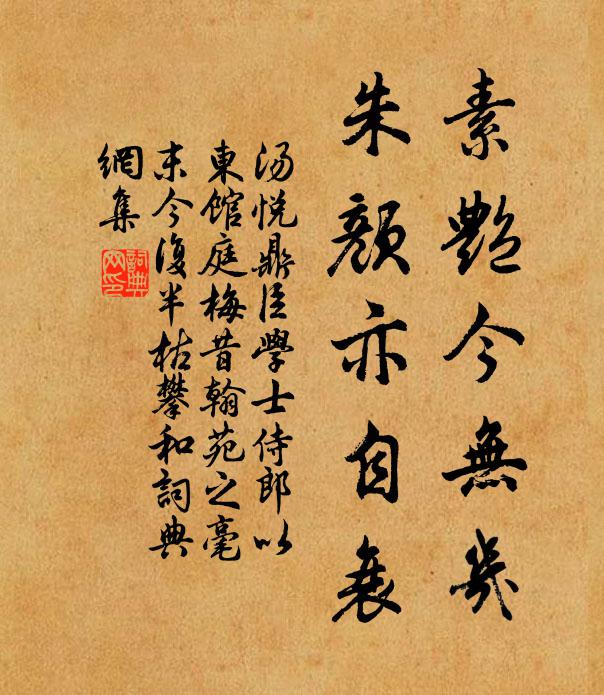 素艷今無幾
朱顏亦自衰
湯悅鼎臣學士侍郎以
東館庭梅昔翰苑之毫
末今復半枯攀和詞典
網集
詞典網印